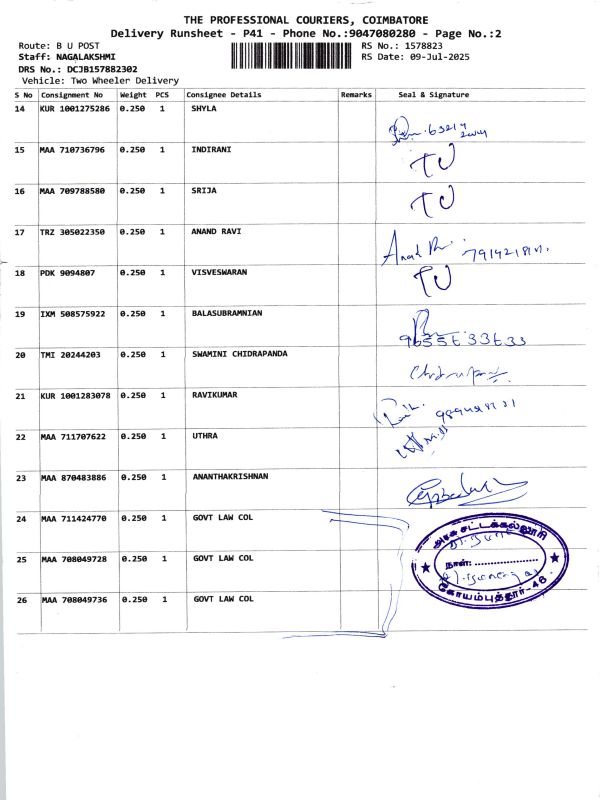 THE PROFESSIONAL COURIERS, COIMBATORE
Delivery Runsheet - P41 - Phone No.:9047080280 - Page No.:2
Route: B U POST
RS No.: 1578823
Staff: NAGALAKSHMI
RS Date: 09-Jul-2025
DRS No.: DCJB157882302
Vehicle: Two Wheeler Delivery
S No Consignment No Weight PCS Consignee Details Remarks Seal & Signature
14 KUR 1001275286 0.250 1 SHYLA
15 MAA 710736796 0.250 1 INDIRANI TU
16 MAA 709788580 0.250 1 SRIJA TU
17 TRZ 305022350 0.250 1 ANAND RAVI
18 PDK 9094807 0.250 1 VISVESWARAN TU
19 IXM 508575922 0.250 1 BALASUBRAMNIAN
20 TMI 20244203 0.250 1 SWAMINI CHIDRAPANDA
21 KUR 1001283078 0.250 1 RAVIKUMAR
22 MAA 711707622 0.250 1 UTHRA
23 MAA 870483886 0.250 1 ANANTHAKRISHNAN
24 MAA 711424770 0.250 1 GOVT LAW COL
25 MAA 708049728 0.250 1 GOVT LAW COL
26 MAA 708049736 0.250 1 GOVT LAW COL
அரசு சட்டக்கல்லூரி
நாள்: ......................
கோயம்புத்தூர்-46.